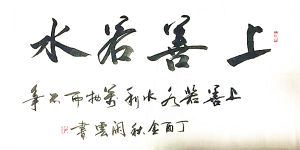 上善若水
上善若水水利萬物而不爭
丁酉金秋閑雲書